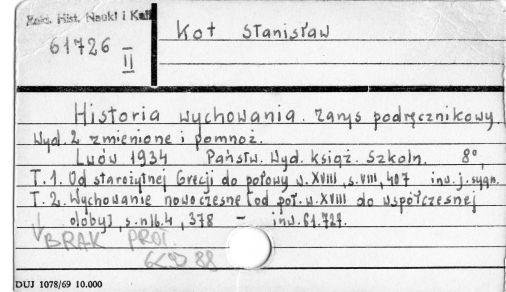 Zakł. Hist. Nauki i Kult.
61726
II
Kot Stanisław
Historia wychowania. Zarys podręcznikowy.
Wyd. 2 zmienione i pomnoż.
Lwów 1934 Państw. Wyd. Książ. Szkoln. 8°,
T. 1. Od starożytnej Grecji do połowy w. XVIII, s. VIII, 407 inw. j. sygn.
T. 2. Wychowanie nowoczesne (od poł. w. XVIII do współczesnej
doby), s. nlb. 4, 378 – inw. 61.727.
BRAK
88
DUJ 1078/69 10.000